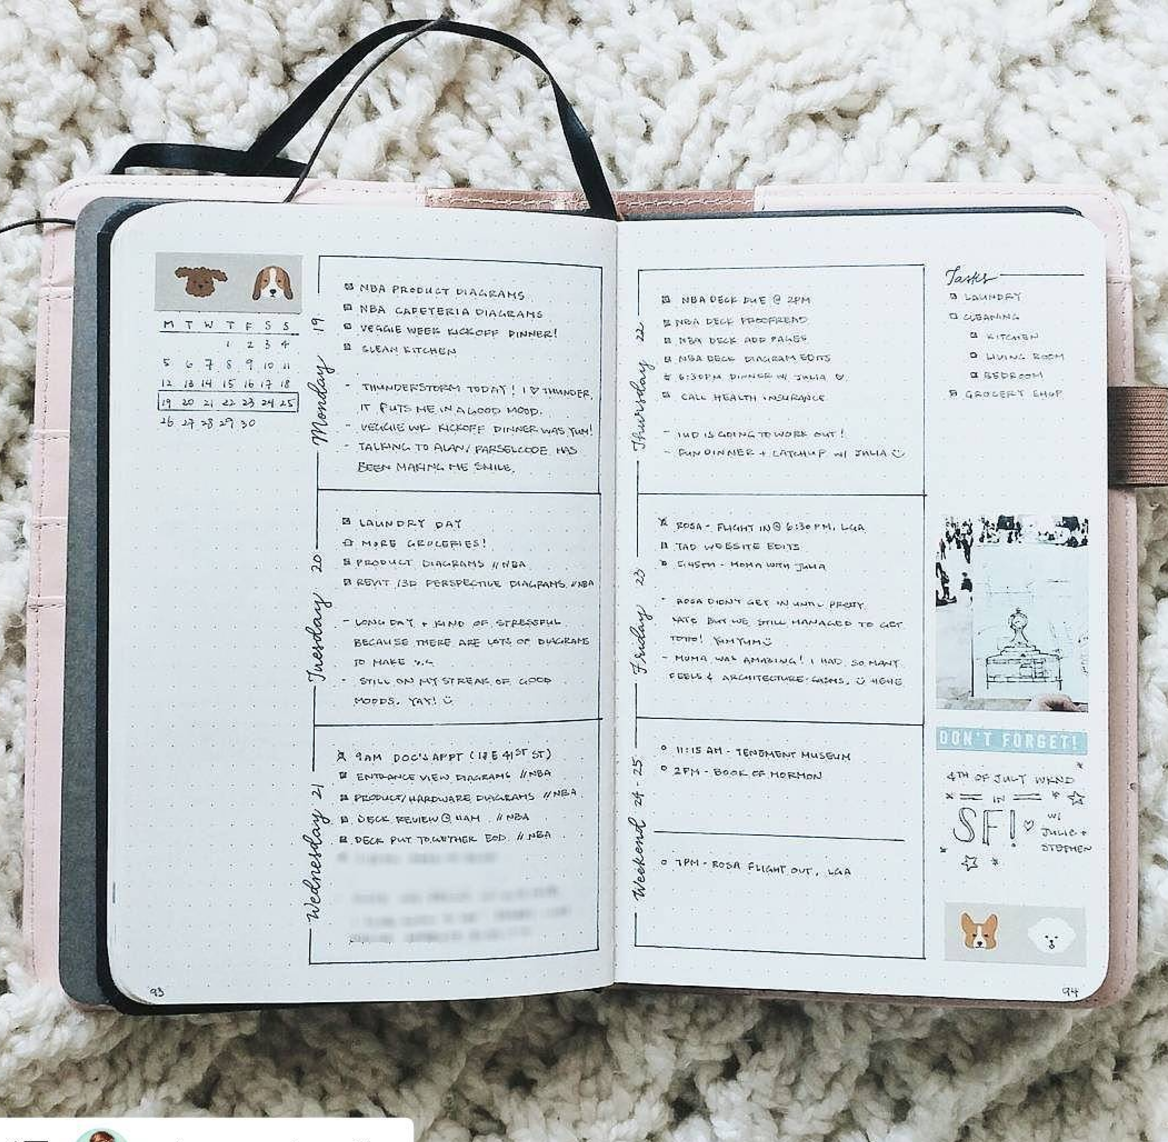 M T W T F S S
1 2 3 4
5 6 7 8 9 10 11
12 13 14 15 16 17 18
19 20 21 22 23 24 25
26 27 28 29 30
Monday 19
NBA PRODUCT DIAGRAMS
NBA CAFETERIA DIAGRAMS
VEGGIE WEEK KICKOFF DINNER!
CLEAN KITCHEN
- THUNDERSTORM TODAY! I ♡ THUNDER,
IT PUTS ME IN A GOOD MOOD.
- VEGGIE WK KICKOFF DINNER WAS YUM!
- TALKING TO ALAN/PARSELCODE HAS
BEEN MAKING ME SMILE.
Tuesday 20
LAUNDRY DAY
MORE GROCERIES!
PRODUCT DIAGRAMS // NBA
REVIT /3D PERSPECTIVE DIAGRAMS // NBA
- LONG DAY + KIND OF STRESSFUL
BECAUSE THERE ARE LOTS OF DIAGRAMS
TO MAKE
- STILL ON MY STREAK OF GOOD
MOODS. YAY!
Wednesday 21
9AM DOC'S APPT (18 E 41ST ST)
ENTRANCE VIEW DIAGRAMS // NBA
PRODUCT/HARDWARE DIAGRAMS // NBA
DECK REVIEW @ 11AM // NBA
DECK PUT TOGETHER EOD // NBA
93
Thursday 22
NBA DECK DUE @ 2PM
NBA DECK PROOFREAD
NBA DECK ADD PAGES
NBA DECK DIAGRAM EDITS
6:30PM DINNER W/ JULIA ♡
CALL HEALTH INSURANCE
- IUD IS GOING TO WORK OUT!
- FUN DINNER + CATCHUP W/ JULIA
Friday 23
ROSA - FLIGHT IN @ 6:30PM, LGA
TAD WEBSITE EDITS
5:45PM - MOMA WITH JULIA
- ROSA DIDN'T GET IN UNTIL PRETTY
LATE BUT WE STILL MANAGED TO GET
TOTTO! YUMYUM
- MOMA WAS AMAZING! I HAD SO MANY
FEELS & ARCHITECTURE-GASMS. HEHE
Weekend 24-25
11:15 AM - TENEMENT MUSEUM
2PM - BOOK OF MORMON
7PM - ROSA FLIGHT OUT, LGA
Tasks
LAUNDRY
CLEANING
KITCHEN
LIVING ROOM
BEDROOM
GROCERY SHOP
DON'T FORGET!
4TH OF JULY WKND
IN
SF! ♡ W/
JULIE +
STEPHEN
94